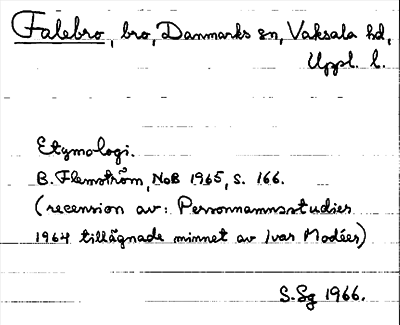 Falebro, bro, Danmarks sn, Vaksala hd,
Uppl. l.
Etymologi.
B. Flemström, NoB 1965, s. 166.
(recension av: Personnamnsstudier
1964 tillägnade minnet av Ivar Modéer)
S. Sg 1966.